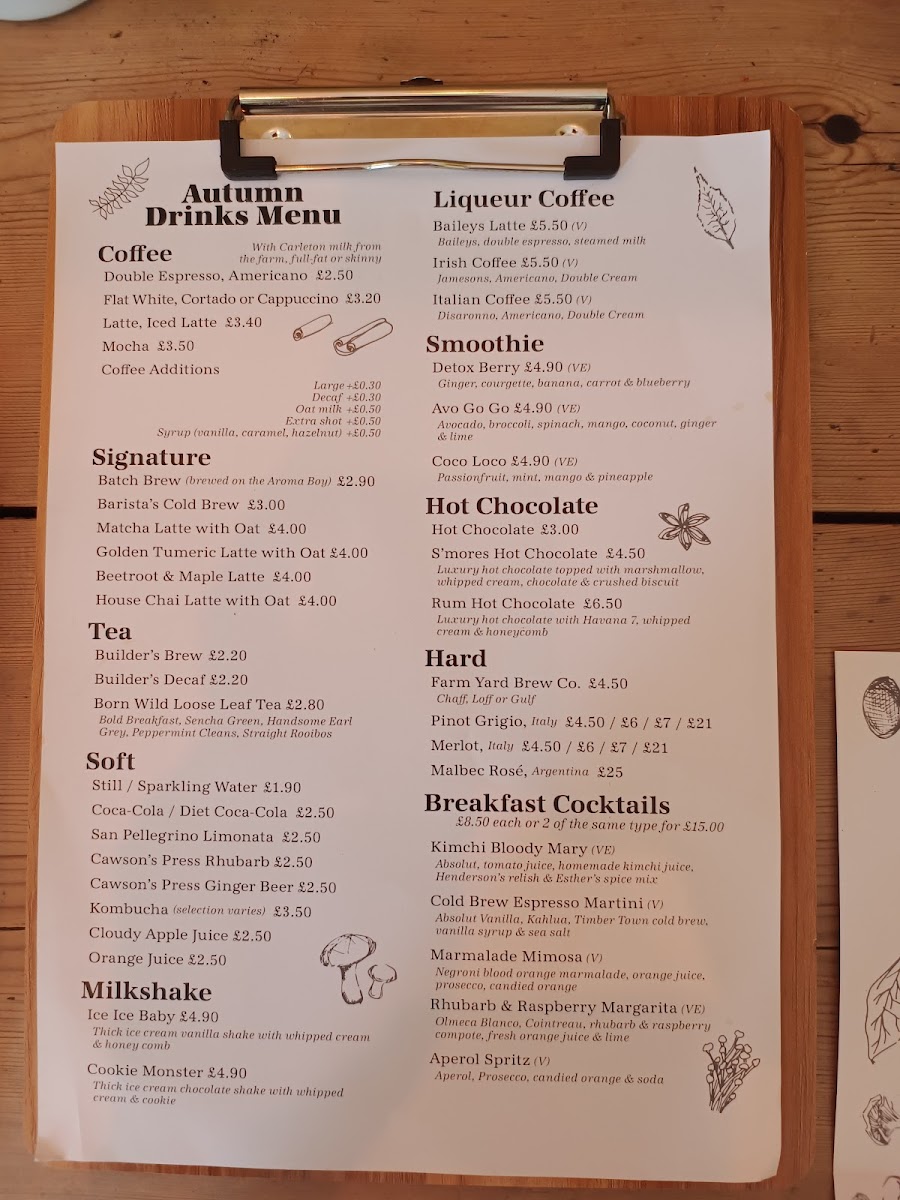 Autumn
Drinks Menu
Coffee
With Carleton milk from
the farm, full-fat or skinny
Double Espresso, Americano £2.50
Flat White, Cortado or Cappuccino £3.20
Latte, Iced Latte £3.40
Mocha £3.50
Coffee Additions
Large +£0.30
Decaf +£0.30
Oat milk +£0.50
Extra shot +£0.50
Syrup (vanilla, caramel, hazelnut) +£0.50
Signature
Batch Brew (brewed on the Aroma Boy) £2.90
Barista's Cold Brew £3.00
Matcha Latte with Oat £4.00
Golden Tumeric Latte with Oat £4.00
Beetroot & Maple Latte £4.00
House Chai Latte with Oat £4.00
Tea
Builder's Brew £2.20
Builder's Decaf £2.20
Born Wild Loose Leaf Tea £2.80
Bold Breakfast, Sencha Green, Handsome Earl
Grey, Peppermint Cleans, Straight Rooibos
Soft
Still / Sparkling Water £1.90
Coca-Cola / Diet Coca-Cola £2.50
San Pellegrino Limonata £2.50
Cawson's Press Rhubarb £2.50
Cawson's Press Ginger Beer £2.50
Kombucha (selection varies) £3.50
Cloudy Apple Juice £2.50
Orange Juice £2.50
Milkshake
Ice Ice Baby £4.90
Thick ice cream vanilla shake with whipped cream
& honey comb
Cookie Monster £4.90
Thick ice cream chocolate shake with whipped
cream & cookie
Liqueur Coffee
Baileys Latte £5.50 (V)
Baileys, double espresso, steamed milk
Irish Coffee £5.50 (V)
Jamesons, Americano, Double Cream
Italian Coffee £5.50 (V)
Disaronno, Americano, Double Cream
Smoothie
Detox Berry £4.90 (VE)
Ginger, courgette, banana, carrot & blueberry
Avo Go Go £4.90 (VE)
Avocado, broccoli, spinach, mango, coconut, ginger
& lime
Coco Loco £4.90 (VE)
Passionfruit, mint, mango & pineapple
Hot Chocolate
Hot Chocolate £3.00
S'mores Hot Chocolate £4.50
Luxury hot chocolate topped with marshmallow,
whipped cream, chocolate & crushed biscuit
Rum Hot Chocolate £6.50
Luxury hot chocolate with Havana 7, whipped
cream & honeycomb
Hard
Farm Yard Brew Co. £4.50
Chaff, Loff or Gulf
Pinot Grigio, Italy £4.50 / £6 / £7 / £21
Merlot, Italy £4.50 / £6 / £7 / £21
Malbec Rosé, Argentina £25
Breakfast Cocktails
£8.50 each or 2 of the same type for £15.00
Kimchi Bloody Mary (VE)
Absolut, tomato juice, homemade kimchi juice,
Henderson's relish & Esther's spice mix
Cold Brew Espresso Martini (V)
Absolut Vanilla, Kahlua, Timber Town cold brew,
vanilla syrup & sea salt
Marmalade Mimosa (V)
Negroni blood orange marmalade, orange juice,
prosecco, candied orange
Rhubarb & Raspberry Margarita (VE)
Olmeca Blanco, Cointreau, rhubarb & raspberry
compote, fresh orange juice & lime
Aperol Spritz (V)
Aperol, Prosecco, candied orange & soda